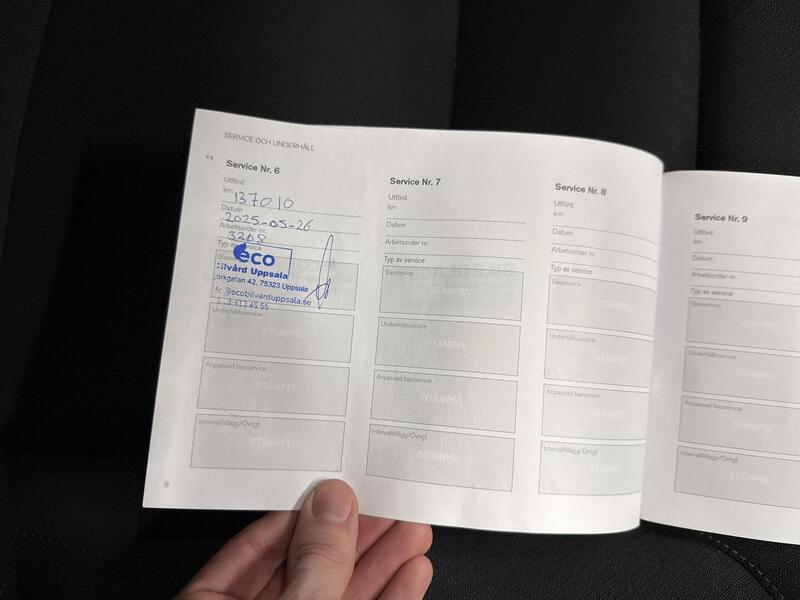 SERVICE OCH UNDERHÅLL
Service Nr. 6
Utförd
km 137010
Datum
2025-05-26
Arbetsorder nr.
3308
Typ av
eco
Bilvård Uppsala
42, 75323 Uppsala
@ecobilvarduppsala.se
Underhållsservice
STÄMPEL
Anpassad basservice
STÄMPEL
Intervalltillägg/Övrigt
STÄMPEL
8
Service Nr. 7
Utförd
km
Datum
Arbetsorder nr.
Typ av service
Basservice
STÄMPEL
Underhållsservice
STÄMPEL
Anpassad basservice
STÄMPEL
Intervalltillägg/Övrigt
STÄMPEL
Service Nr. 8
Utförd
km
Datum
Arbetsorder nr.
Typ av service
Basservice
STÄMPEL
Underhållsservice
STÄMPEL
Anpassad basservice
STÄMPEL
Intervalltillägg/Övrigt
STÄMPEL
Service Nr. 9
Utförd
km
Datum
Arbetsorder nr.
Typ av service
Basservice
STÄMPEL
Underhållsservice
STÄMPEL
Anpassad basservice
STÄMPEL
Intervalltillägg/Övrigt
STÄMPEL